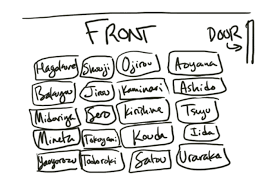 FRONT DOOR
Hagakure Shouji Ojirou Aoyama
Bakugou Jirou Kaminari Ashido
Midoriya Sero Kirishima Tsuyu
Mineta Tokoyami Kouda Iida
Yaoyorozu Todoroki Satou Uraraka